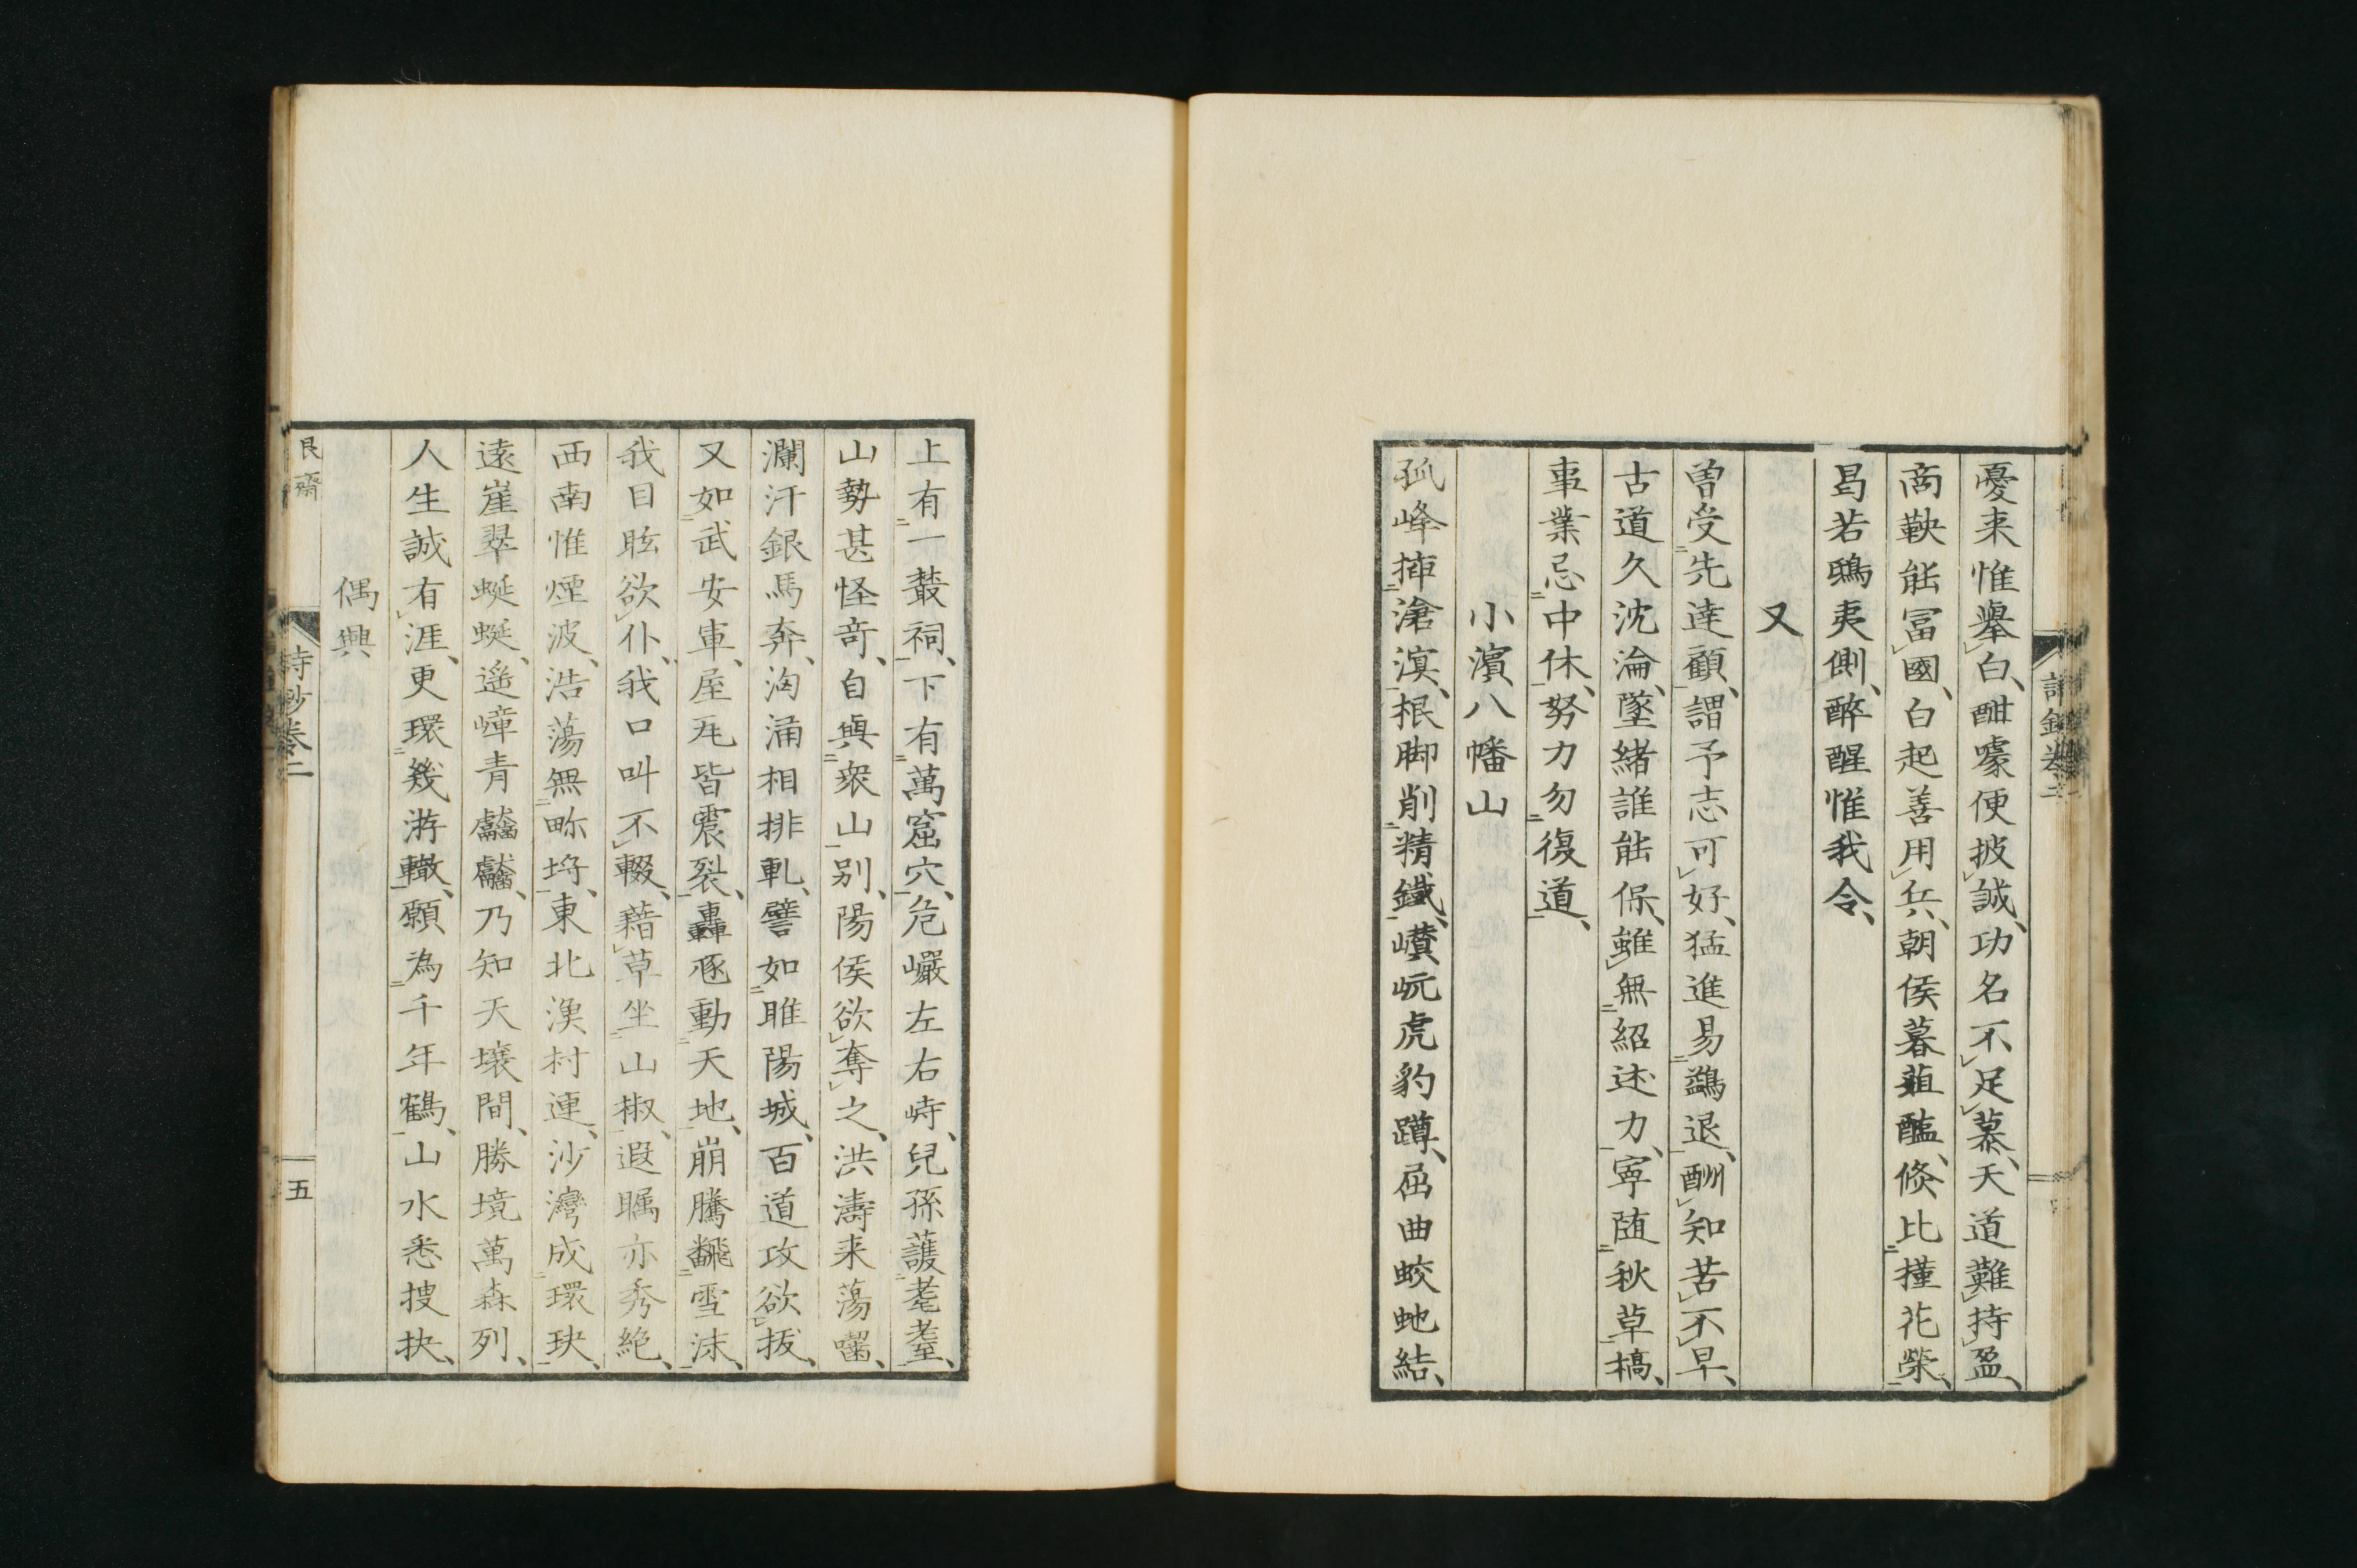 憂来惟擧白酣噱便披誠功名不足慕天道難持盈
商鞅能冨國白起善用兵朝侯暮葅醢倐比槿花榮
曷若鴟夷側醉醒惟我令
又
曽受先達顧謂予志可好猛進易鷁退酬知苦不早
古道久沈淪墜緒誰能保雖無紹述力寧随秋草槁
事業忌中休努力勿復道
小濱八幡山
孤峰揷滄溟根脚削精鐵巑岏虎豹蹲屈曲蛟虵結
上有一叢祠下有萬窟穴危巗左右峙兒孫護耄耋
山勢甚怪竒自與衆山别陽侯欲奪之洪濤来蕩囓
瀾汗銀馬奔洶涌相排軋譬如睢陽城百道攻欲拔
又如武安軍屋瓦皆震裂轟豗動天地崩騰飜雪沫
我目眩欲仆我口叫不輟藉草坐山椒遐矚亦秀絶
西南惟煙波浩蕩無畛埒東北漁村連沙灣成環玦
遠崖翠蜒蜒遥嶂青齾齾乃知天壌間勝境萬森列
人生誠有涯更環幾游轍願為千年鶴山水悉捜抉
偶興
艮齋 詩鈔卷二 五